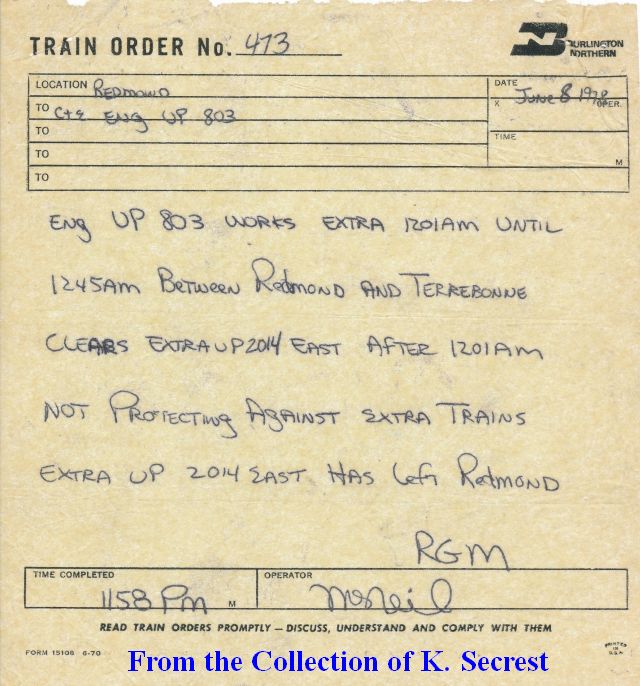 TRAIN ORDER No. 473
BURLINGTON
NORTHERN
LOCATION REDMOND
DATE
X June 8 1978 OPER.
TO C+E ENG UP 803
TO
TIME
M
TO
TO
ENG UP 803 WORKS EXTRA 1201AM UNTIL
1245AM BETWEEN REDMOND AND TERREBONNE
CLEARS EXTRA UP 2014 EAST AFTER 1201AM
NOT PROTECTING AGAINST EXTRA TRAINS
EXTRA UP 2014 EAST HAS Left REDMOND
RGM
TIME COMPLETED
1158 PM M
OPERATOR
McNeil
READ TRAIN ORDERS PROMPTLY — DISCUSS, UNDERSTAND AND COMPLY WITH THEM
FORM 15108 6-70
PRINTED
IN
U.S.A.
From the Collection of K. Secrest